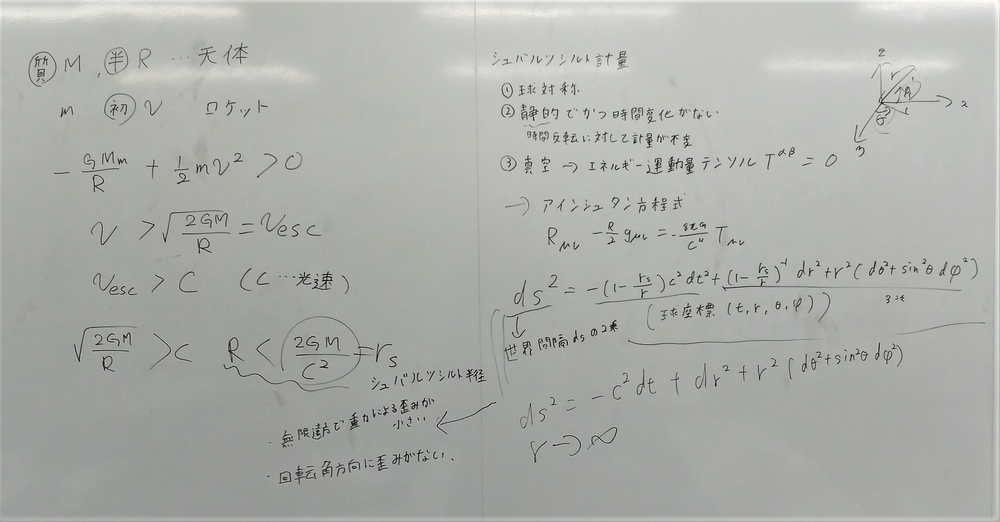 質 M, 半 R … 天体
m 初 v ロケット
- GMm/R + 1/2 mv² > 0
v > √(2GM/R) = Vesc
Vesc > C (C … 光速)
√(2GM/R) > c R < 2GM/C² = rs
シュバルツシルト半径
・無限遠方で重力による歪みが
小さい
・回転角方向に歪みがない、
シュバルツシルト計量
① 球対称
② 静的でかつ時間変化がない
時間反転に対して計量が不変
③ 真空 → エネルギー運動量テンソル T^αβ = 0
→ アインシュタン方程式
Rμν - R/2 gμν = 8πG/C⁴ Tμν
ds² = -(1 - rs/r)c²dt² + (1 - rs/r)⁻¹ dr² + r²(dθ² + sin²θ dφ²)
(球座標 (t, r, θ, φ))
世界間隔dsの2乗
ds² = -c²dt + dr² + r²(dθ² + sin²θ dφ²)
r → ∞
z
r
x
y